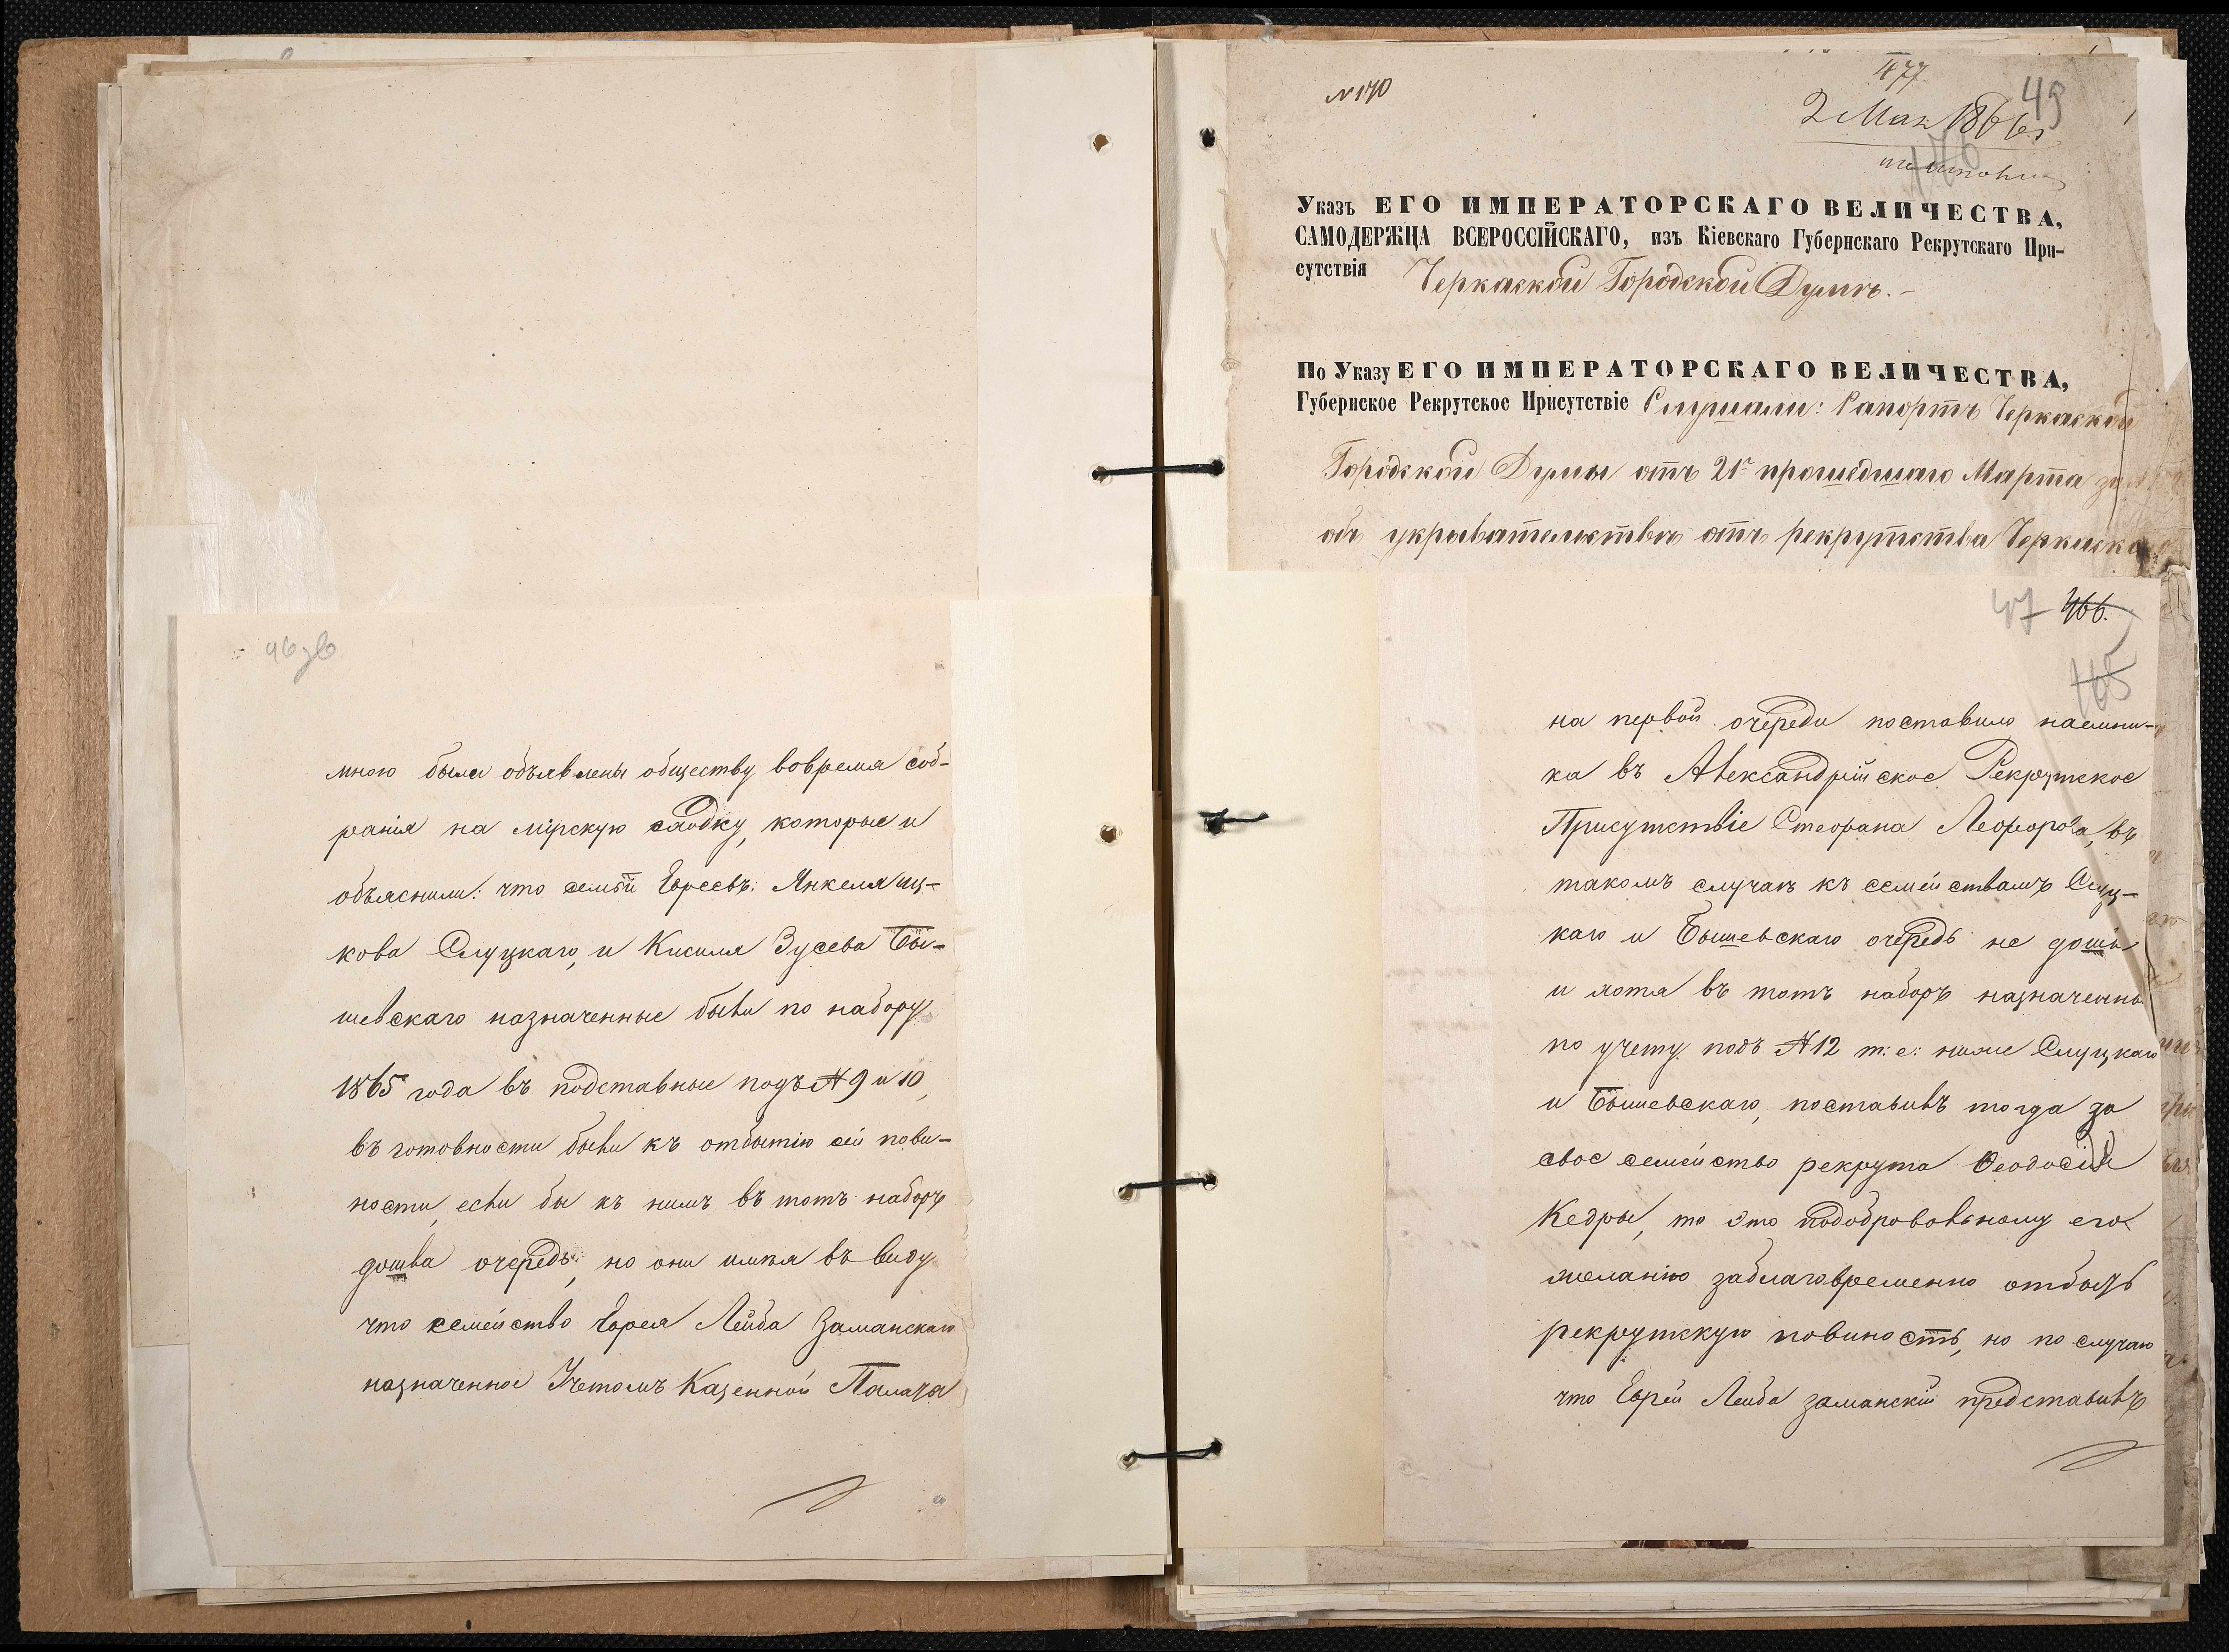 46 зв
мною были объявлены обществу, вовремя соб-
ранія на мірскую сходку, которые и
объяснили: что семьи Евреевъ: Янкеля Иц-
кова Слуцкаго, и Кисиля Зусева Бы-
шевскаго назначенные были по набору
1865 года въ подставные подъ № 9 и 10,
въ готовности были къ отбытію сей пови-
ности, если бы къ нимъ въ тотъ наборъ
дошла очередь; но они имея въ виду
что семейство Еврея Лейба Заманскаго
назначенное Учетомъ Казенной Палаты
№ 170
477
49
2 Мая 1866
Указъ ЕГО ИМПЕРАТОРСКАГО ВЕЛИЧЕСТВА,
САМОДЕРЖЦА ВСЕРОССІЙСКАГО, изъ Кіевскаго Губернскаго Рекрутскаго При-
сутствія Черкаской Городской Думѣ.
По Указу ЕГО ИМПЕРАТОРСКАГО ВЕЛИЧЕСТВА,
Губернское Рекрутское Присутствіе Слушали: Рапортъ Черкаской
Городской Думы отъ 21го прошедшаго Марта за
объ укрывательствѣ отъ рекрутства Черкаск
47 466.
465
на первой очереди поставило наемни-
ка въ Александрійское Рекрутское
Присутствіе Стефана въ
такомъ случаѣ къ семействамъ Слуц-
каго и Бышевскаго очередь не дошла
и хотя въ тотъ наборъ назначенны
по учету подъ № 12 т: е: ниже Слуцкаго
и Бышевскаго, поставивъ тогда за
свое семейство рекрута Феодосія
Кедры, то это подобровольному его
желанію заблаговременно отбыть
рекрутскую повиность, но по случаю
что Еврей Лейба Заманскій представивъ